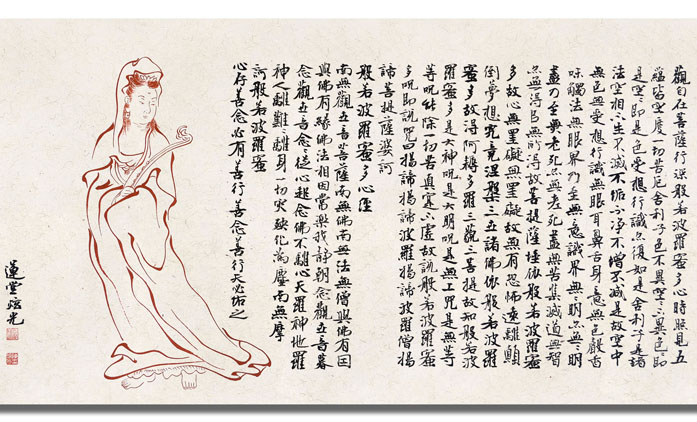 觀自在菩薩行深般若波羅蜜多心時照見五
蘊皆空度一切苦厄舍利子色不異空空不異色色即
是空空即是色受想行識亦復如是舍利子是諸
法空相不生不滅不垢不淨不增不減是故空中
無色無受想行識無眼耳鼻舌身意無色聲香
味觸法無眼界乃至無意識界無無明亦無無明
盡乃至無老死亦無老死盡無苦集滅道無智
亦無得以無所得故菩提薩埵依般若波羅蜜
多故心無罣礙無罣礙故無有恐怖遠離顛
倒夢想究竟涅槃三世諸佛依般若波羅
蜜多故得阿耨多羅三藐三菩提故知般若波
羅蜜多是大神咒是大明咒是無上咒是無等
等咒能除一切苦真實不虛故說般若波羅蜜
多咒即說咒曰揭諦揭諦波羅揭諦波羅僧揭
諦菩提薩婆訶
般若波羅蜜多心經
南無觀世音菩薩南無佛南無法無僧與佛有因
與佛有緣佛法相因常樂我靜朝念觀世音暮
念觀世音念念從心起念佛不離心天羅神地羅
神人離難難離身一切災殃化為塵南無摩
訶般若波羅蜜
心存善念必有善行善念善行天必佑之
蓮堂炫光